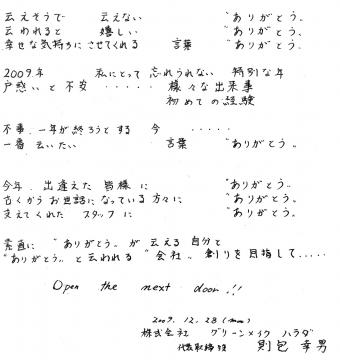 云えそうで 云えない “ありがとう。
云われると 嬉しい “ありがとう。
幸せな気持ちにさせてくれる 言葉 “ありがとう。
2009年 私にとって 忘れられない 特別な年
戸惑いと不安 ・・・・・ 様々な出来事
初めての経験
不事、一年が終ろうとする 今 ・・・・・
一番 云いたい 言葉 “ありがとう”
今年、出逢えた 皆様に “ありがとう”
古くからお世話になっている方々に “ありがとう。
支えてくれた スタッフに “ありがとう。
素直に “ありがとう” が 云える 自分と
“ありがとう” と云われる “会社” 創りを目指して・・・・・
Open the next door!!
2009. 12. 28 (mon)
株式会社 グリーンメイク ハラダ
代表取締役 則包 幸男